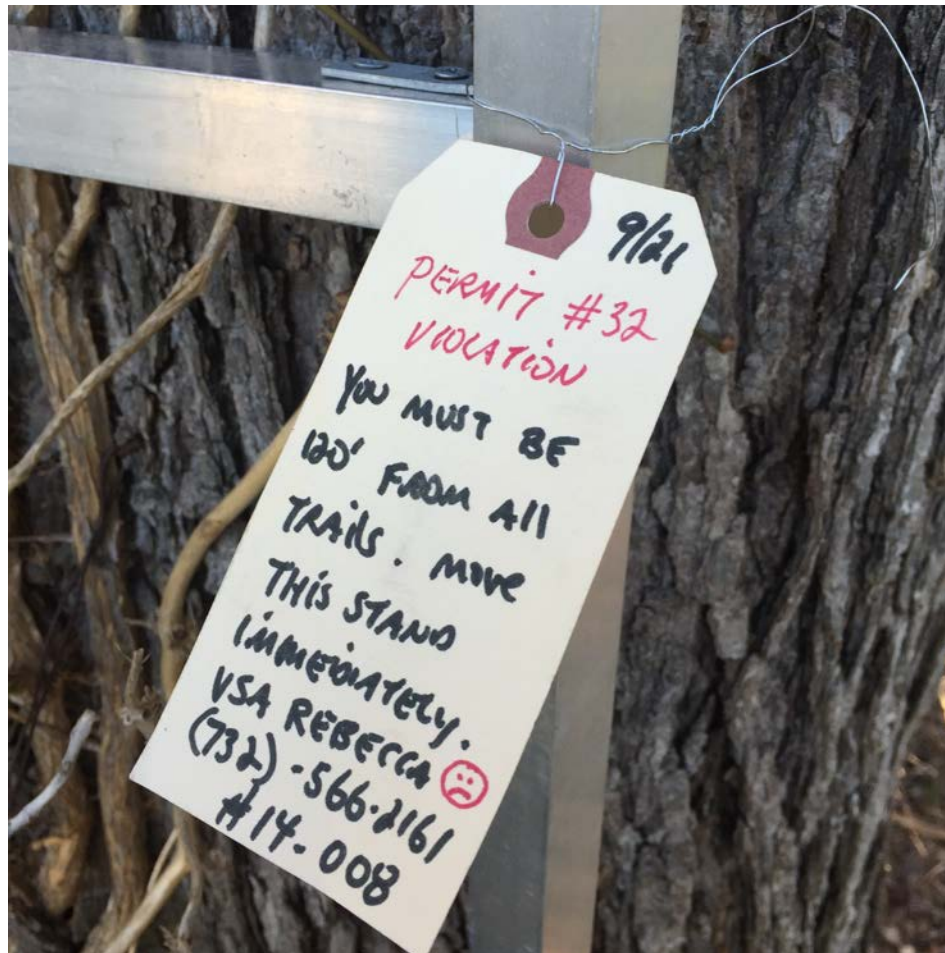 9/21
PERMIT #32
VIOLATION
YOU MUST BE
120' FROM All
TRAils. MOVE
THIS STAND
IMMEDIATELY.
VSA REBECCA
(732)-566-2161
#14-008